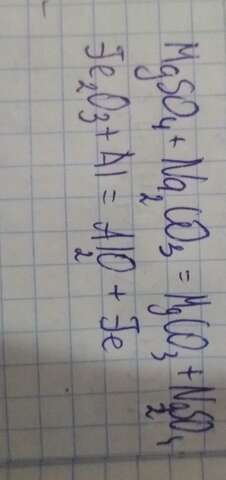 MgSO₄ + Na₂CO₃ = MgCO₃ + Na₂SO₄
Fe₂O₃ + Al = Al₂O + Fe